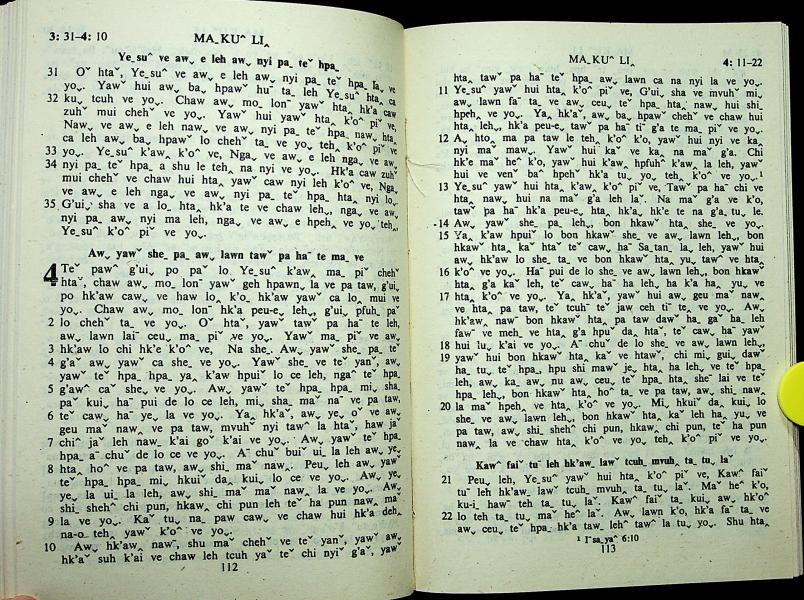 3: 31–4: 10
MA_ KUˆ LI‸
Ye_ suˆ ve aw˯ e leh aw˯ nyi pa_ teˇ hpa_
31 Oˇ htaˇ, Ye_ suˆ ve aw˯ e leh aw˯ nyi pa_ teˇ hpa_ la˯ ve
yo˯. Yawˇ hui aw˯ ba˯ hpawˇ huˉ ta˯ leh Ye_ suˆ hta‸ ca
32 ku˯ tcuh ve yo˯. Chaw aw˯ mo_ lonˉ yawˇ hta‸ hk'a caw
zuhˇ mui chehˇ ve yo˯. Yawˇ hui yawˇ hta‸ k'oˆ piˇ ve,
Naw˯ ve aw˯ e leh naw˯ ve aw˯ nyi pa_ teˇ hpa_ naw˯ hta‸
ca leh aw˯ ba˯ hpawˇ lo chehˇ ta˯ ve yo˯ teh‸ k'oˆ piˇ ve
33 yo˯. Ye_ suˆ k'aw‸ k'oˆ ve, Nga˯ ve aw˯ e leh nga˯ ve aw˯
34 nyi pa_ teˇ hpa_ a shu le teh‸ na nyi ve yo˯. Hk'a caw zuhˇ
mui chehˇ ve chaw hui hta‸ yawˇ caw nyi leh k'oˆ ve, Nga˯
ve aw˯ e leh nga˯ ve aw˯ nyi pa_ teˇ hpa_ hta‸ nyi lo˯.
35 G'ui˯ sha ve a lo_ hta‸ hk'a te ve chaw leh˯, nga˯ ve aw˯
nyi pa_ aw˯ nyi ma leh, nga˯ ve aw˯ e hpeh˯ ve yo˯ teh‸
Ye_ suˆ k'oˆ piˇ ve yo˯.
Aw˯ yawˇ she_ pa_ aw˯ lawn taw˯ pa haˉ te ma_ ve
4 Teˇ pawˆ g'ui˯ po pa˯ lo Ye_ suˆ k'aw‸ ma_ piˇ chehˇ
htaˇ, chaw aw˯ mo_ lonˉ yawˇ geh hpawn˯ la ve pa taw˯ g'ui˯
po hk'aw caw˯ ve haw lo‸ k'o‸ hk'aw yawˇ ca lo˯ mui ve
yo˯. Chaw aw˯ mo_ lonˉ hk'a peu-e‸ leh˯, g'ui˯ pfuh_ paˇ
2 lo chehˇ ta_ ve yo˯. Oˇ htaˇ, yawˇ tawˇ pa haˉ te leh,
aw˯ lawn lai˯ ceu˯ ma_ piˇ ve yo˯. Yawˇ ma_ piˇ ve aw˯
3 hk'aw lo chi hk'e k'oˆ ve, Na she_. Aw˯ yawˇ she_ pa_ te
4 g'aˇ aw˯ yawˇ ca she_ ve yo˯. Yawˇ she_ ve te yanˇ, aw˯
yawˇ teˇ hpa_ hpa_ ya˯ k'aw hpuiˇ lo ce leh, ngaˇ teˇ hpa_
5 g'awˆ caˇ she˯ ve yo˯. Aw˯ yawˇ teˇ hpa_ hpa_ mi˯ sha_
paˇ kui˯ haˉ pui de lo ce leh, mi˯ sha_ maˇ naˇ ve pa taw˯
6 teˇ caw˯ haˉ ye˯ la ve yo˯. Ya‸ hk'aˇ, aw˯ ye˯ oˇ ve aw˯
geu maˇ naw˯ ve pa taw˯ mvuhˇ nyi tawˆ la htaˇ, haw jaˇ
7 chiˆ jaˇ leh naw˯ k'ai goˇ k'ai ve yo˯. Aw˯ yawˇ teˇ hpa_
hpa_ aˉ chuˇ de lo ce ve yo˯. Aˉ chuˇ buiˇ ui_ la leh aw˯ ye˯
8 hta‸ hoˆ ve pa taw˯ aw˯ shi_ maˇ naw˯. Peu˯ leh aw˯ yawˇ
teˇ hpa_ hpa_ mi˯ hkuiˇ da˯ kui˯ lo ce ve yo˯. Aw˯ ye˯
ye˯ la ui_ la leh, aw˯ shi_ maˇ maˇ naw˯ la ve yo˯. Aw˯
shi_ shehˆ chi pun, hkaw‸ chi pun leh teˇ ha pun naw˯ ma˯
9 la ve yo˯. Kaˇ tu˯ na_ paw caw˯ ve chaw hui hk'a deh‸
na-o teh‸ yawˇ k'oˆ ve yo˯.
10 Aw˯ hk'aw‸ nawˉ, shu maˇ chehˇ ve te yanˇ, yawˇ aw˯
hk'aˇ suh k'ai ve chaw leh tcuh yaˇ teˇ chi nyi g'aˇ, yawˇ
112
MA_ KUˆ LI‸
4: 11–22
hta‸ tawˇ pa haˉ teˇ hpa_ aw˯ lawn ca na nyi la ve yo˯.
11 Ye_ suˆ yawˇ hui hta‸ k'oˆ piˇ ve, G'ui˯ sha ve mvuhˇ mi˯
aw˯ lawn faˇ ta˯ ve aw˯ ceu˯ teˇ hpa_ hta‸ naw˯ hui shi_
hpeh˯ ve yo˯. Ya‸ hk'aˇ, aw˯ ba˯ hpawˇ chehˇ ve chaw hui
hta‸ leh˯, hk'a peu-e‸ tawˇ pa haˉ tiˉ g'a te ma_ piˇ ve yo˯.
12 A˯ hto_ ma pa taw le teh‸ k'oˆ k'o, yawˇ hui nyi ve ka˯
nyi maˇ maw˯. Yawˇ hui kaˇ ve ka˯ na maˇ g'a. Chi
hk'e maˇ heˆ k'o, yawˇ hui k'aw‸ hpfuhˇ k'aw‸ la leh, yawˇ
hui ve venˇ baˇ hpehˇ hk'a tu˯ yo˯ teh‸ k'oˆ ve yo˯.¹
13 Ye_ suˆ yawˇ hui hta‸ k'aw‸ k'oˆ piˇ ve, Tawˇ pa haˉ chi ve
hta‸ naw˯ hui na maˇ g'a leh laˇ. Na maˇ g'a ve k'o,
tawˇ pa haˉ hk'a peu-e‸ hta‸ hk'a‸ hk'e te na g'a tu˯ le.
14 Aw˯ yawˇ she_ pa_ leh˯, bon hkawˇ hta‸ she_ ve yo˯.
15 Ya‸ k'aw hpui lo bon hkawˇ she_ ve aw˯ lawn leh˯, bon
hkawˇ hta‸ kaˇ htaˇ teˇ caw˯ haˉ Sa_tan_ la leh, yawˇ hui
aw˯ hk'aw lo she_ ta_ ve bon hkawˇ hta‸ yu˯ tawˆ ve hta‸
16 k'oˆ ve yo˯. Haˉ pui de lo she_ ve aw˯ lawn leh˯, bon hkawˇ
hta‸ g'a kaˇ leh, teˇ caw˯ haˉ ha leh‸ ha k'a ha‸ yu˯ ve
17 hta‸ k'oˆ ve yo˯. Ya‸ hk'aˇ, yawˇ hui aw˯ geu maˇ naw˯
ve hta‸ pa taw˯ teˇ tcuhˉ teˇ jaw ceh tiˉ te˯ ve yo˯. Aw˯
hk'aw‸ nawˉ bon hkawˇ hta‸ pa taw dawˇ ha˯ gaˇ ha leh
fawˇ ve meh˯ ve hta‸ g'a hpuˇ da‸ htaˇ, teˇ caw˯ haˉ yawˇ
18 hui lu˯ k'ai ve yo˯. Aˉ chuˇ de lo she_ ve aw˯ lawn leh˯,
19 yawˇ hui bon hkawˇ hta‸ kaˇ ve htawˇ, chi mi˯ gui˯ dawˇ
ha_ tu˯ teˇ hpa_ hpu shi mawˇ je˯ hta‸ ha leh˯ ve teˇ hpa_
leh, aw˯ ka˯ aw˯ nu aw˯ ceu˯ teˇ hpa_ hta‸ sheˉ lai ve teˇ
hpa_ leh˯, bon hkawˇ hta‸ hoˆ ta_ ve pa taw˯ aw˯ shi_ naw˯
20 la maˇ hpeh˯ ve hta‸ k'oˆ ve yo˯. Mi˯ hkuiˇ da˯ kui˯ lo
she_ ve aw˯ lawn leh˯, bon hkawˇ hta‸ kaˇ leh ha‸ yu˯ ve
pa taw˯ aw˯ shi_ shehˆ chi pun, hkaw‸ chi pun, teˇ ha pun
naw˯ la ve chaw hta‸ k'oˆ ve yo˯ teh‸ k'oˆ piˇ ve yo˯.
Kawˆ faiˇ tuˉ leh hk'aw˯ lawˇ tcuh_ mvuh‸ ta_ tu˯ laˇ
21 Peu˯ leh, Ye_ suˆ yawˇ hui hta‸ k'oˆ piˇ ve, Kawˆ faiˇ
tuˉ leh hk'aw˯ lawˇ tcuh_ mvuh‸ ta_ tu˯ laˇ. Maˇ heˆ k'o,
ku-i‸ hawˉ teh ta_ tu˯ laˇ. Kawˆ faiˇ ta_ kui˯ aw˯ hk'oˆ
22 lo teh ta_ tu˯ maˇ heˆ laˇ. Aw˯ lawn k'o˯ hk'a faˇ ta_ ve
aw˯ ceu˯ teˇ hpa_ hk'a taw˯ lehˆ tawˆ la tu˯ yo˯. Shu hta‸
¹ Iˉ sa_ yaˆ 6:10
113